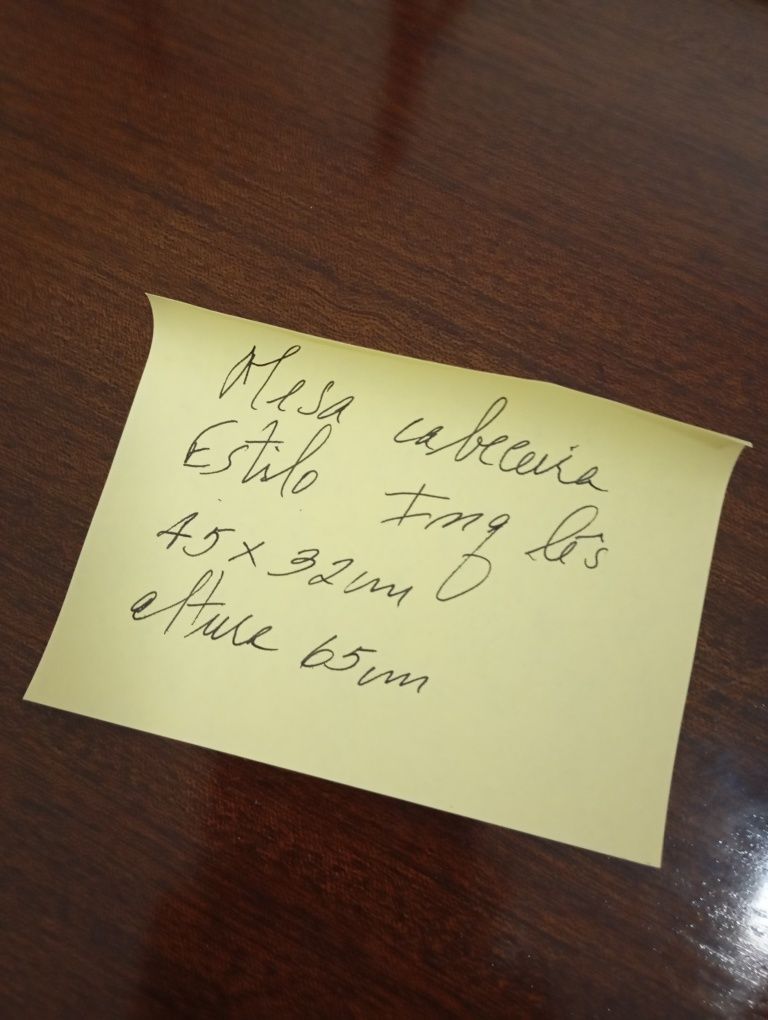 Mesa cabeceira
Estilo Inglês
45 x 32 cm
altura 65 cm